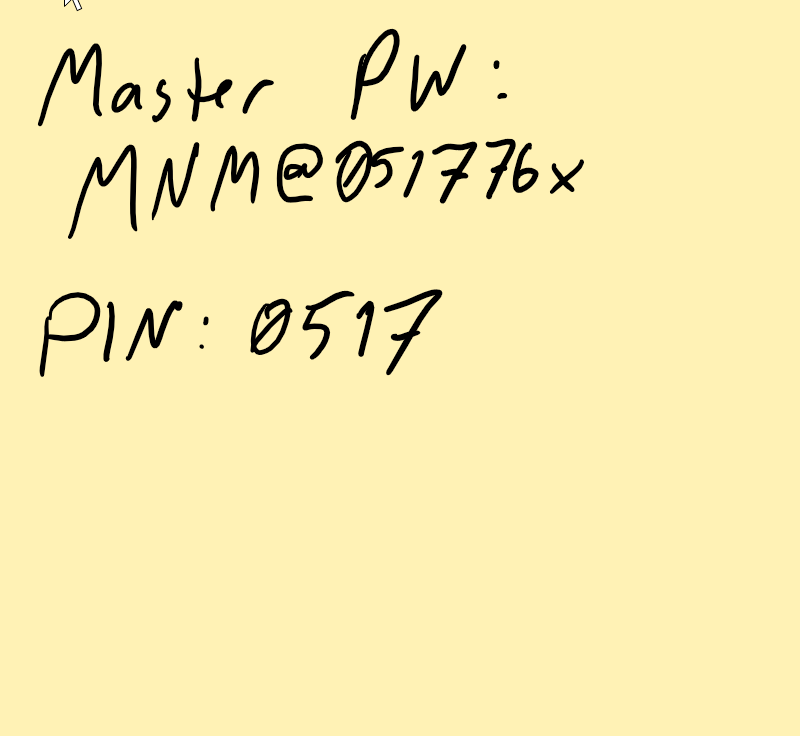 Master PW:
MNM@051776x
PIN: 0517